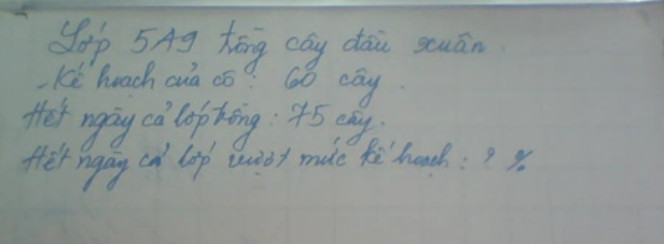 Lớp 5A9 trồng cây đầu xuân.
- Kế hoạch của cô: 60 cây.
Hết ngày cả lớp trồng: 75 cây.
Hết ngày cả lớp vượt mức kế hoạch: ? %